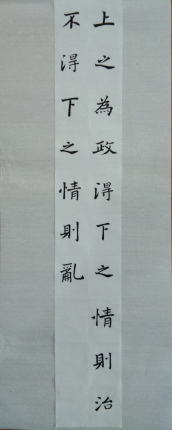 上之為政得下之情則治
不得下之情則亂